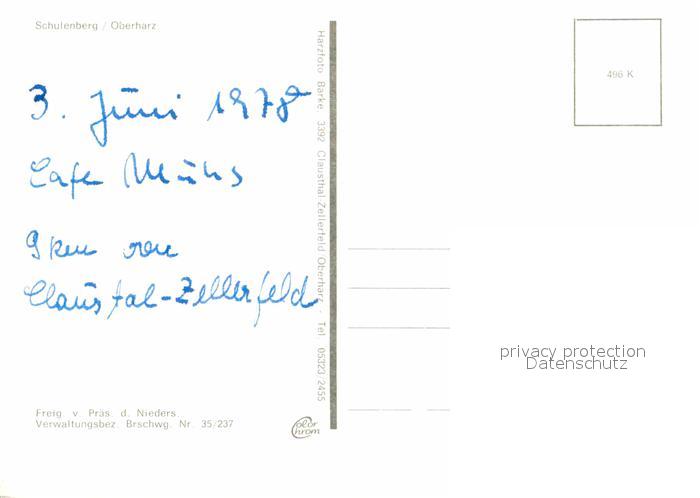 Schulenberg / Oberharz
3. Juni 1978
Cafe Muhs
9 km von
Claustal-Zellerfeld
Freig. v. Präs. d. Nieders.
Verwaltungsbez. Brschwg. Nr. 35/237
Harzfoto Barke 3392 Clausthal-Zellerfeld Oberharz · Tel. 05323/2455
Color
Chrom
496 K
privacy protection
Datenschutz